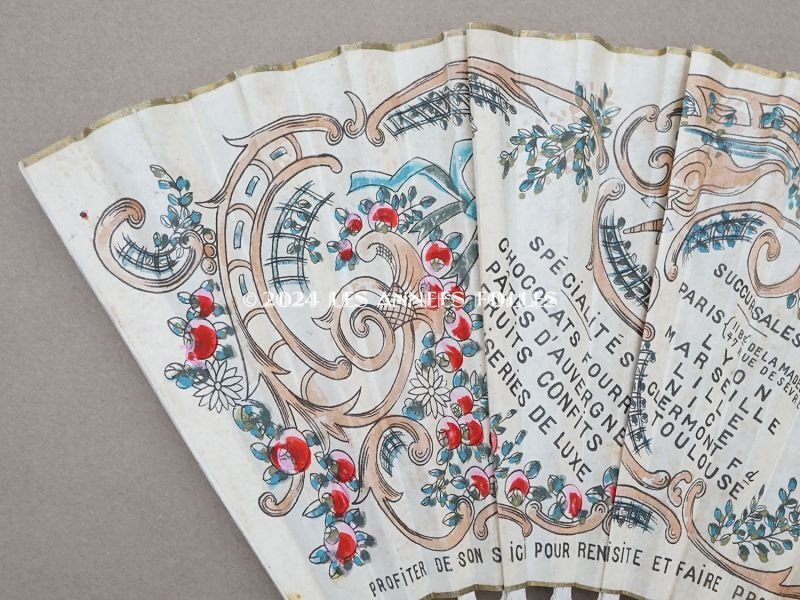 © 2024 LES ANNEES FOLLES
SPÉCIALITES
CHOCOLATS FOURR
PATES D'AUVERGNE
FRUITS CONFITS
SERIES DE LUXE
SUCCURSALES
PARIS { 11 BD DE LA MADE
RUE DE SÈVR
LYON
MARSEILLE
LILLE
NICE
CLERMONT Fd
TOULOUSE
PROFITER DE SON S ICI POUR REN SITE ET FAIRE PRO